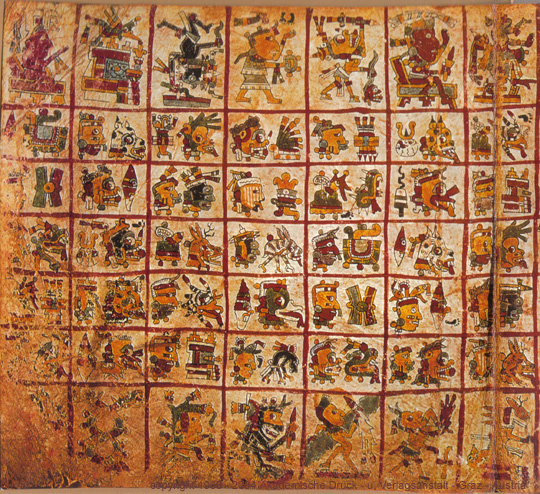 copyright Akademische Druck - u. Verlagsanstalt - Graz - Austria